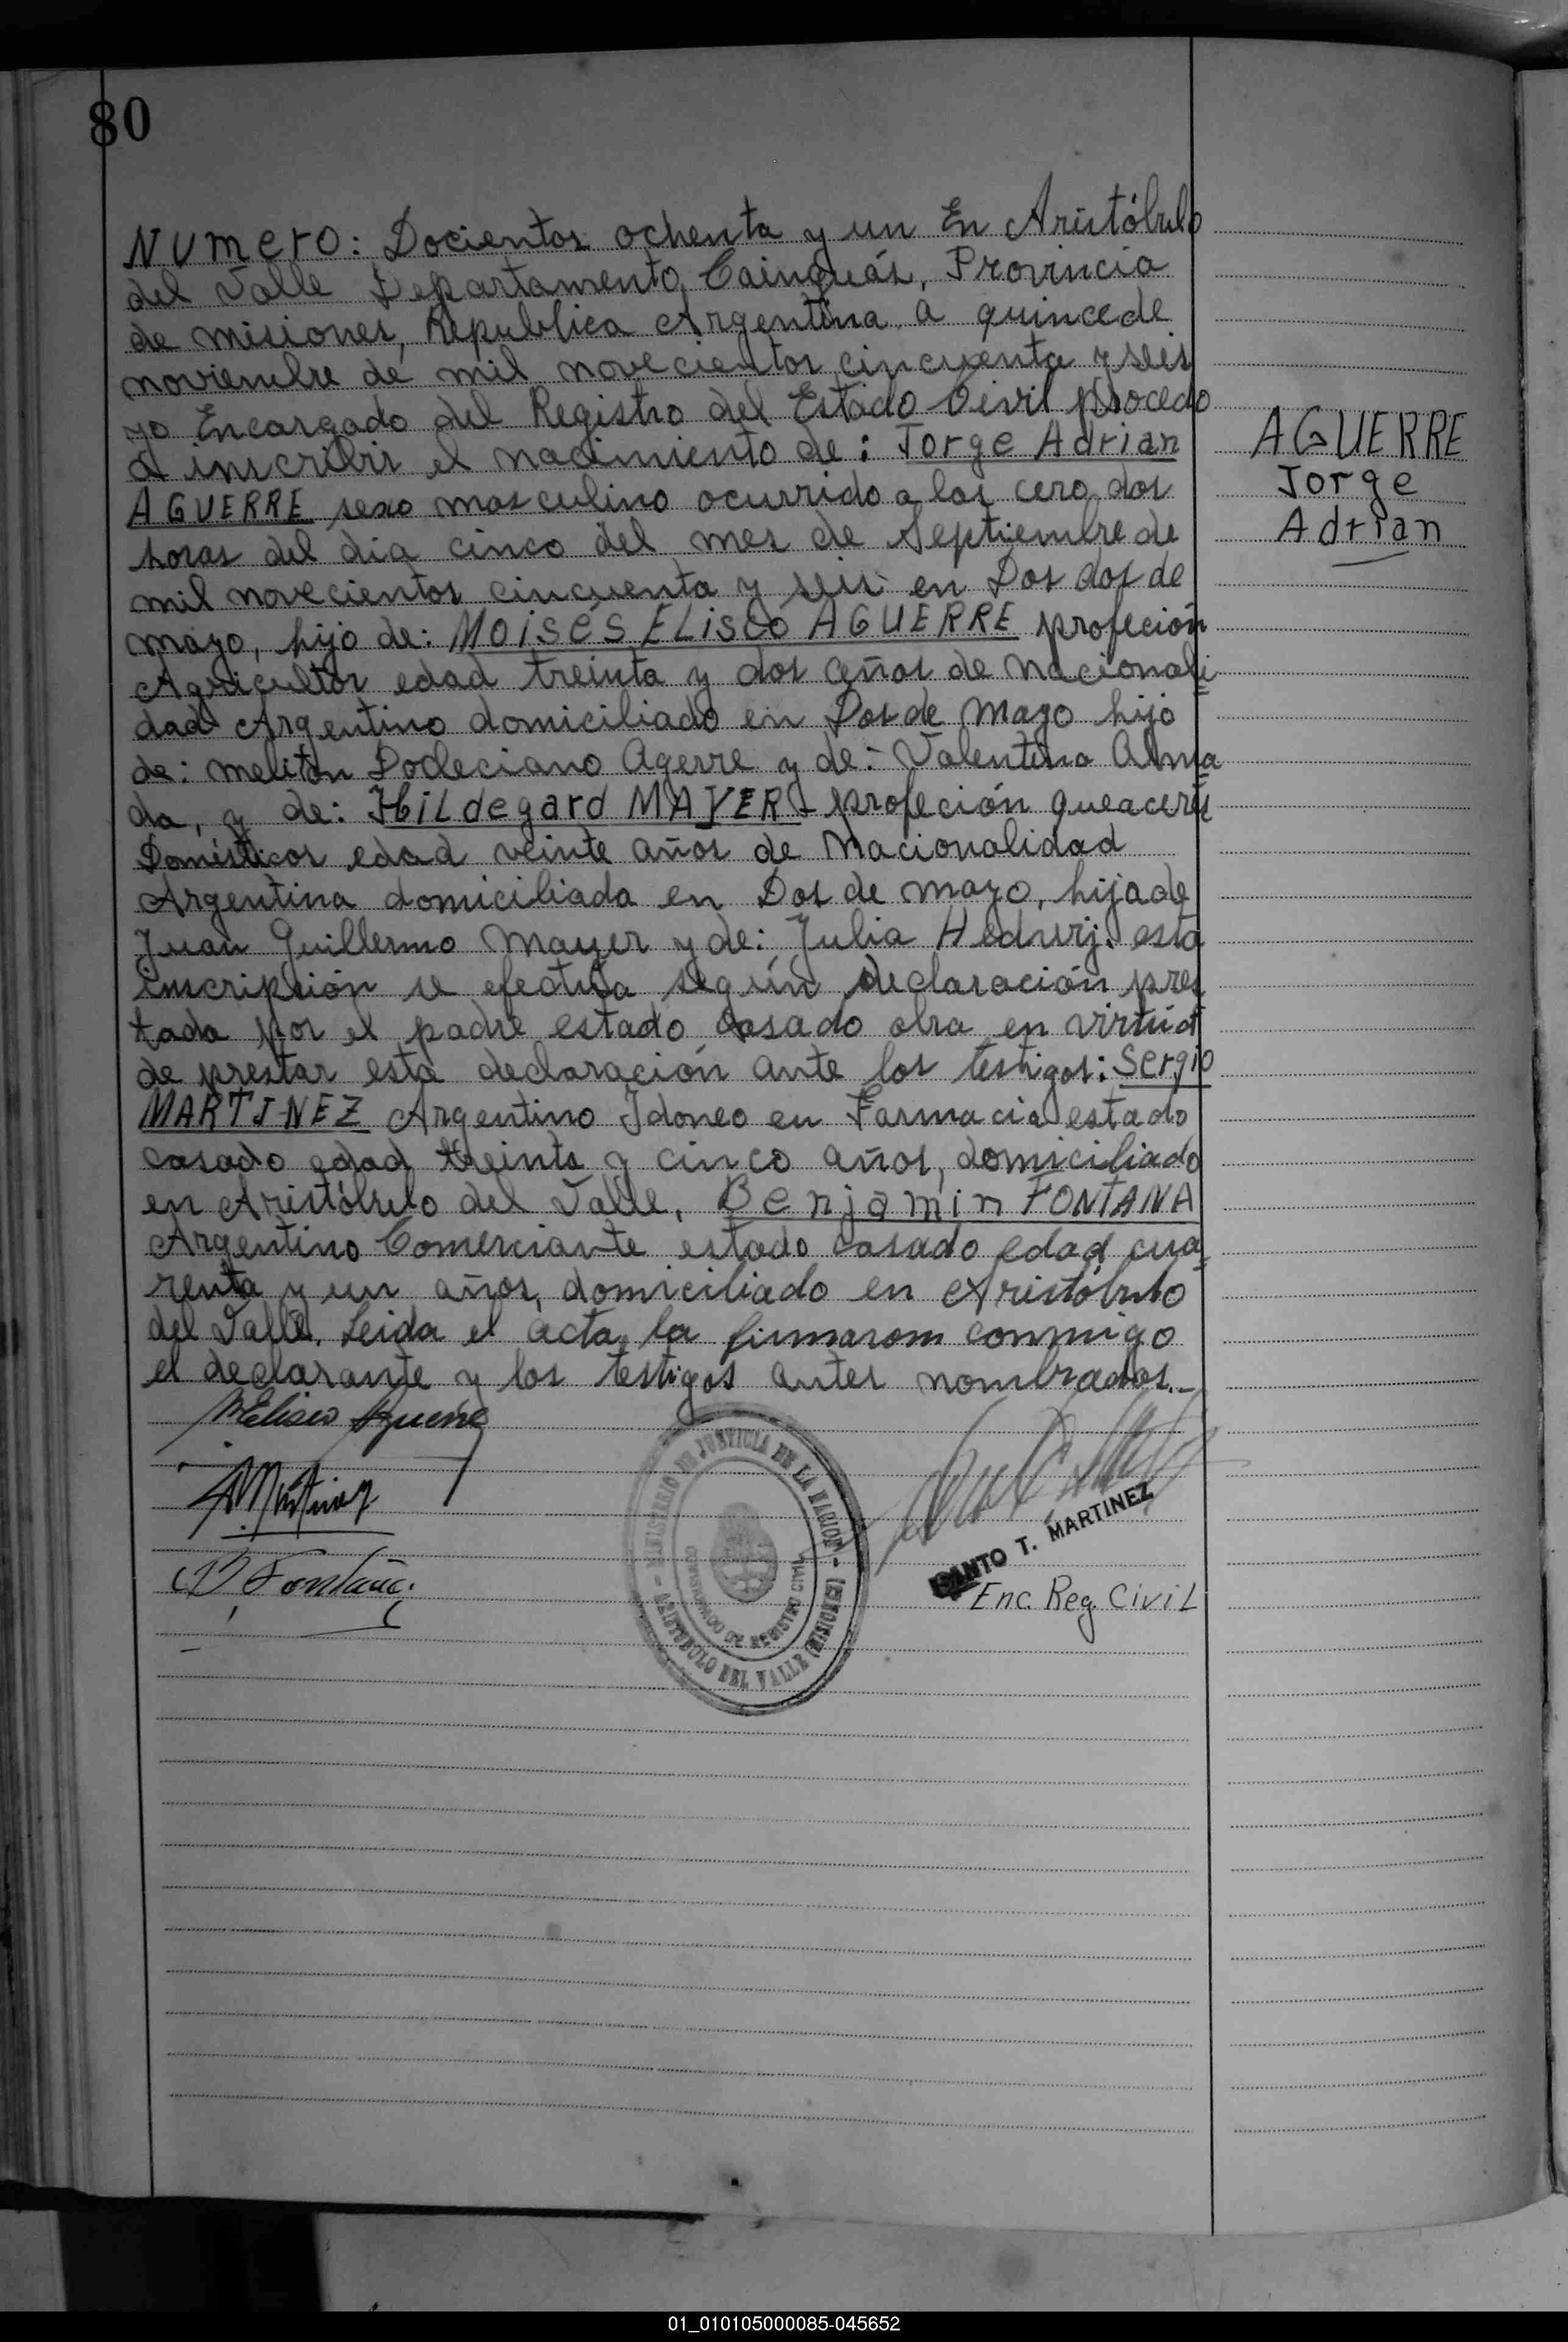 80
NUMERO: Docientos ochenta y un En Aristóbulo
del Valle Departamento Cainguás, Provincia
de misiones, Republica Argentina a quince de
noviembre de mil novecientos cincuenta y seis
yo Encargado del Registro del Estado Civil procedo
a inscribir el nacimiento de: Jorge Adrian
AGUERRE sexo masculino ocurrido a las cero dos
horas del dia cinco del mes de Septiembre de
mil novecientos cincuenta y seis en Dos dos de
mayo, hijo de: MOISÉS ELISEO AGUERRE profeción
Agricultor edad treinta y dos años de nacionali
dad Argentino domiciliado en Dos de Mayo hijo
de: meliton Docleciano Agerre y de: Valentina Alma
da, y de: HILdegard MAYER - profeción queaceres
Domésticos edad veinte años de nacionalidad
Argentina domiciliada en Dos de mayo, hija de
Juan Guillermo Mayer y de: Julia Hedwrj. esta
inscripsión se efectúa según declaración pres
tada por el padre estado casado obra en virtud
de prestar esta declaración ante los testigos: Sergio
MARTINEZ Argentino Idoneo en Farmacia estado
casado edad treinta y cinco años, domiciliado
en Aristóbulo del Valle, Benjamin FONTANA
Argentino Comerciante estado casado edad cua-
renta y un años, domiciliado en Aristóbulo
del Valle. Leida el acta la firmaron conmigo
el declarante y los testigos antes nombrados.-
AGUERRE
Jorge
Adrian
MEliseo Aguerre
Martinez
B. Fontana
MINISTERIO DE JUSTICIA DE LA NACION
ARISTOBULO DEL VALLE (MISIONES)
ENCARGADO DE REGISTRO CIVIL
SANTO T. MARTINEZ
Enc. Reg Civil
01_010105000085-045652